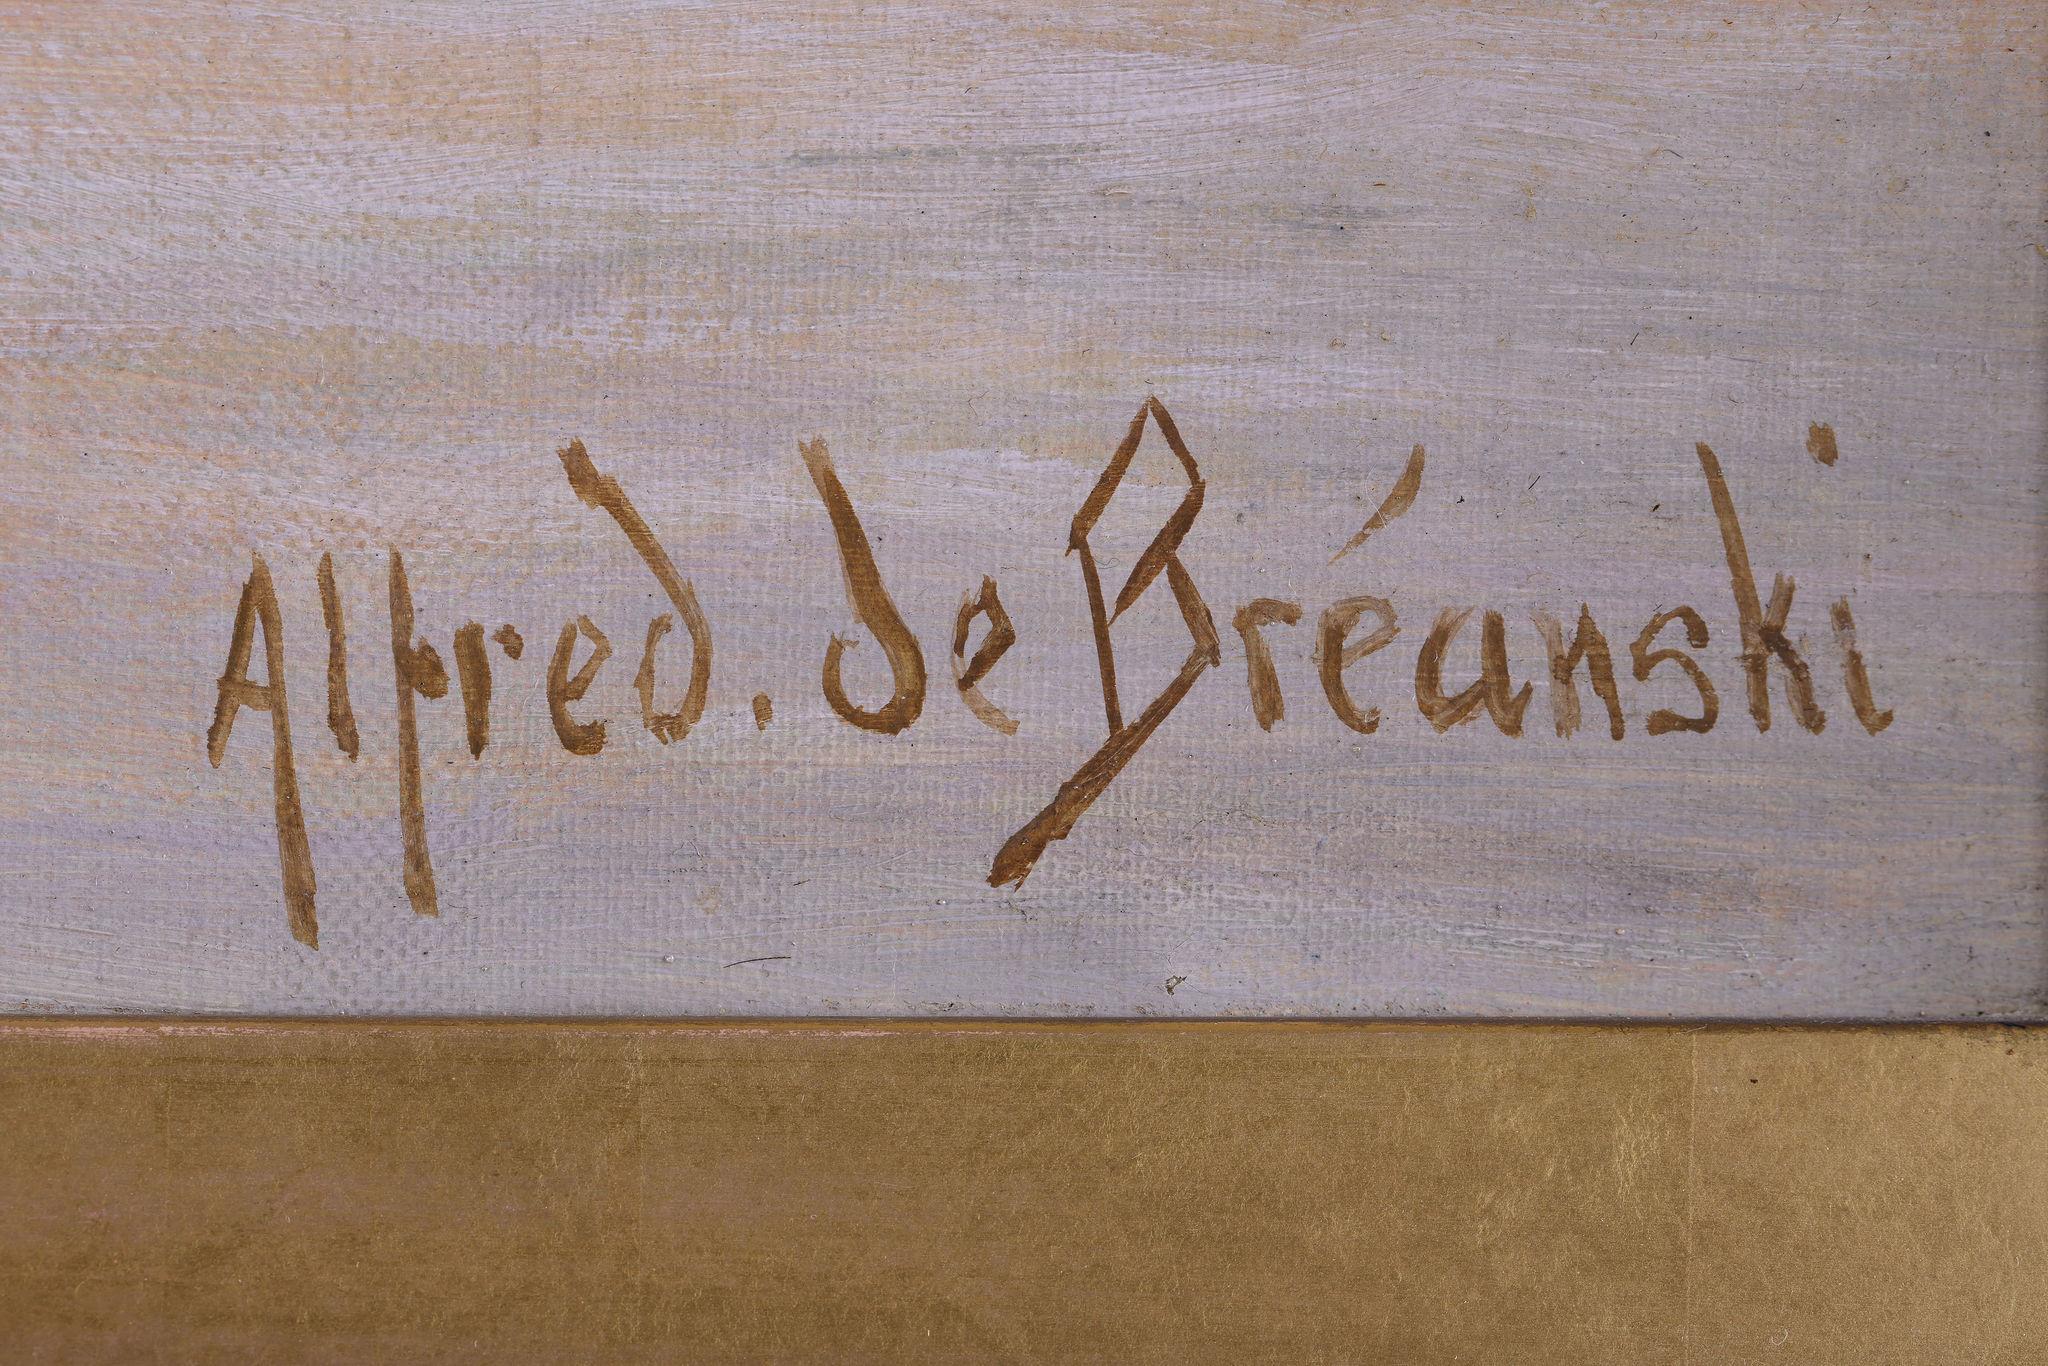 Alfred. de Bréanski